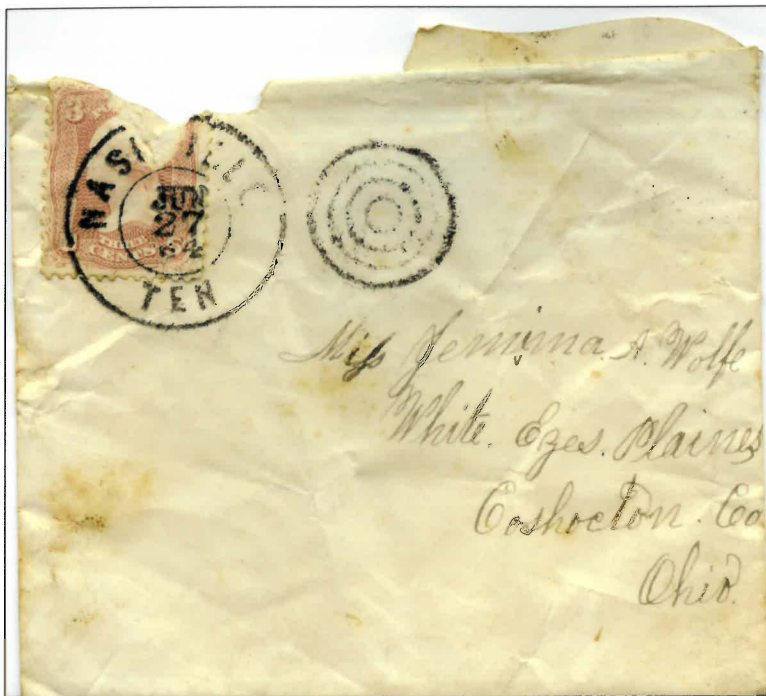 3
NAS
JUN
27
64
TEN
THREE
CENTS
Miss Jemima. A. Wolfe
White. Eyes. Plaines
Coshocton. Co
Ohio.